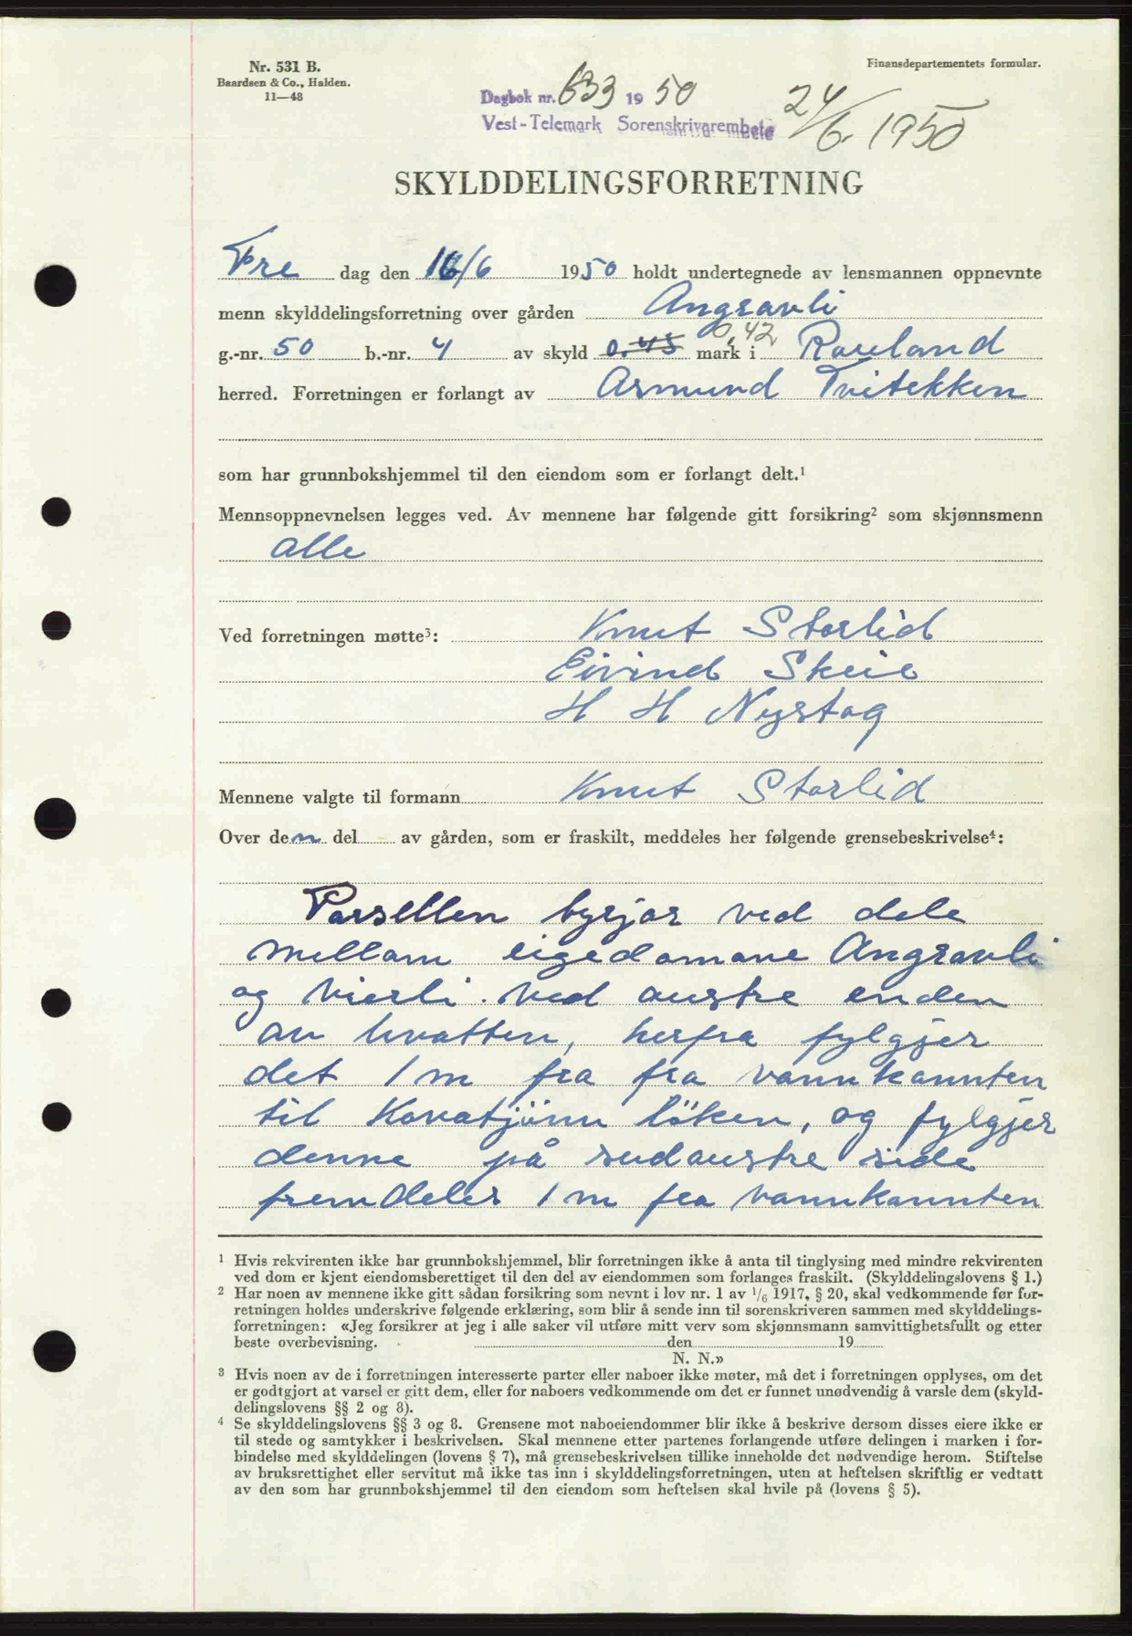 Nr. 531 B.
Baardsen & Co., Halden.
11—48
Finansdepartementets formular.
Dagbok nr. 633 1950
Vest-Telemark Sorenskrivarembete
24/6. 1950
SKYLDDELINGSFORRETNING
Fre dag den 16/6 1950 holdt undertegnede av lensmannen oppnevnte
menn skylddelingsforretning over gården Angravli
g.-nr. 50 b.-nr. 4 av skyld 0.45 0,42 mark i Rauland
herred. Forretningen er forlangt av Asmund Tveitekken
som har grunnbokshjemmel til den eiendom som er forlangt delt.¹
Mennsoppnevnelsen legges ved. Av mennene har følgende gitt forsikring² som skjønnsmenn
alle
Ved forretningen møtte³: Knut Storlid
Eivind Skeie
H H Nystog
Mennene valgte til formann Knut Storlid
Over den del av gården, som er fraskilt, meddeles her følgende grensebeskrivelse⁴:
Parsellen byrjar ved dele
mellom eigedomane Angravli
og Vierli. Ved austre enden
av kvatten, herfra fylgjer
det 1 m fra fra vannkannten
til Kovatjönn löken, og fylgjer
denne på sudaustre side
fremdeles 1 m fra vannkannten
¹ Hvis rekvirenten ikke har grunnbokshjemmel, blir forretningen ikke å anta til tinglysing med mindre rekvirenten
ved dom er kjent eiendomsberettiget til den del av eiendommen som forlanges fraskilt. (Skylddelingslovens § 1.)
² Har noen av mennene ikke gitt sådan forsikring som nevnt i lov nr. 1 av 1/6 1917, § 20, skal vedkommende før for-
retningen holdes underskrive følgende erklæring, som blir å sende inn til sorenskriveren sammen med skylddelings-
forretningen: «Jeg forsikrer at jeg i alle saker vil utføre mitt verv som skjønnsmann samvittighetsfullt og etter
beste overbevisning. den 19
N. N.»
³ Hvis noen av de i forretningen interesserte parter eller naboer ikke møter, må det i forretningen opplyses, om det
er godtgjort at varsel er gitt dem, eller for naboers vedkommende om det er funnet unødvendig å varsle dem (skyld-
delingslovens §§ 2 og 8).
⁴ Se skylddelingslovens §§ 3 og 8. Grensene mot naboeiendommer blir ikke å beskrive dersom disses eiere ikke er
til stede og samtykker i beskrivelsen. Skal mennene etter partenes forlangende utføre delingen i marken i for-
bindelse med skylddelingen (lovens § 7), må grensebeskrivelsen tillike inneholde det nødvendige herom. Stiftelse
av bruksrettighet eller servitut må ikke tas inn i skylddelingsforretningen, uten at heftelsen skriftlig er vedtatt
av den som har grunnbokshjemmel til den eiendom som heftelsen skal hvile på (lovens § 5).